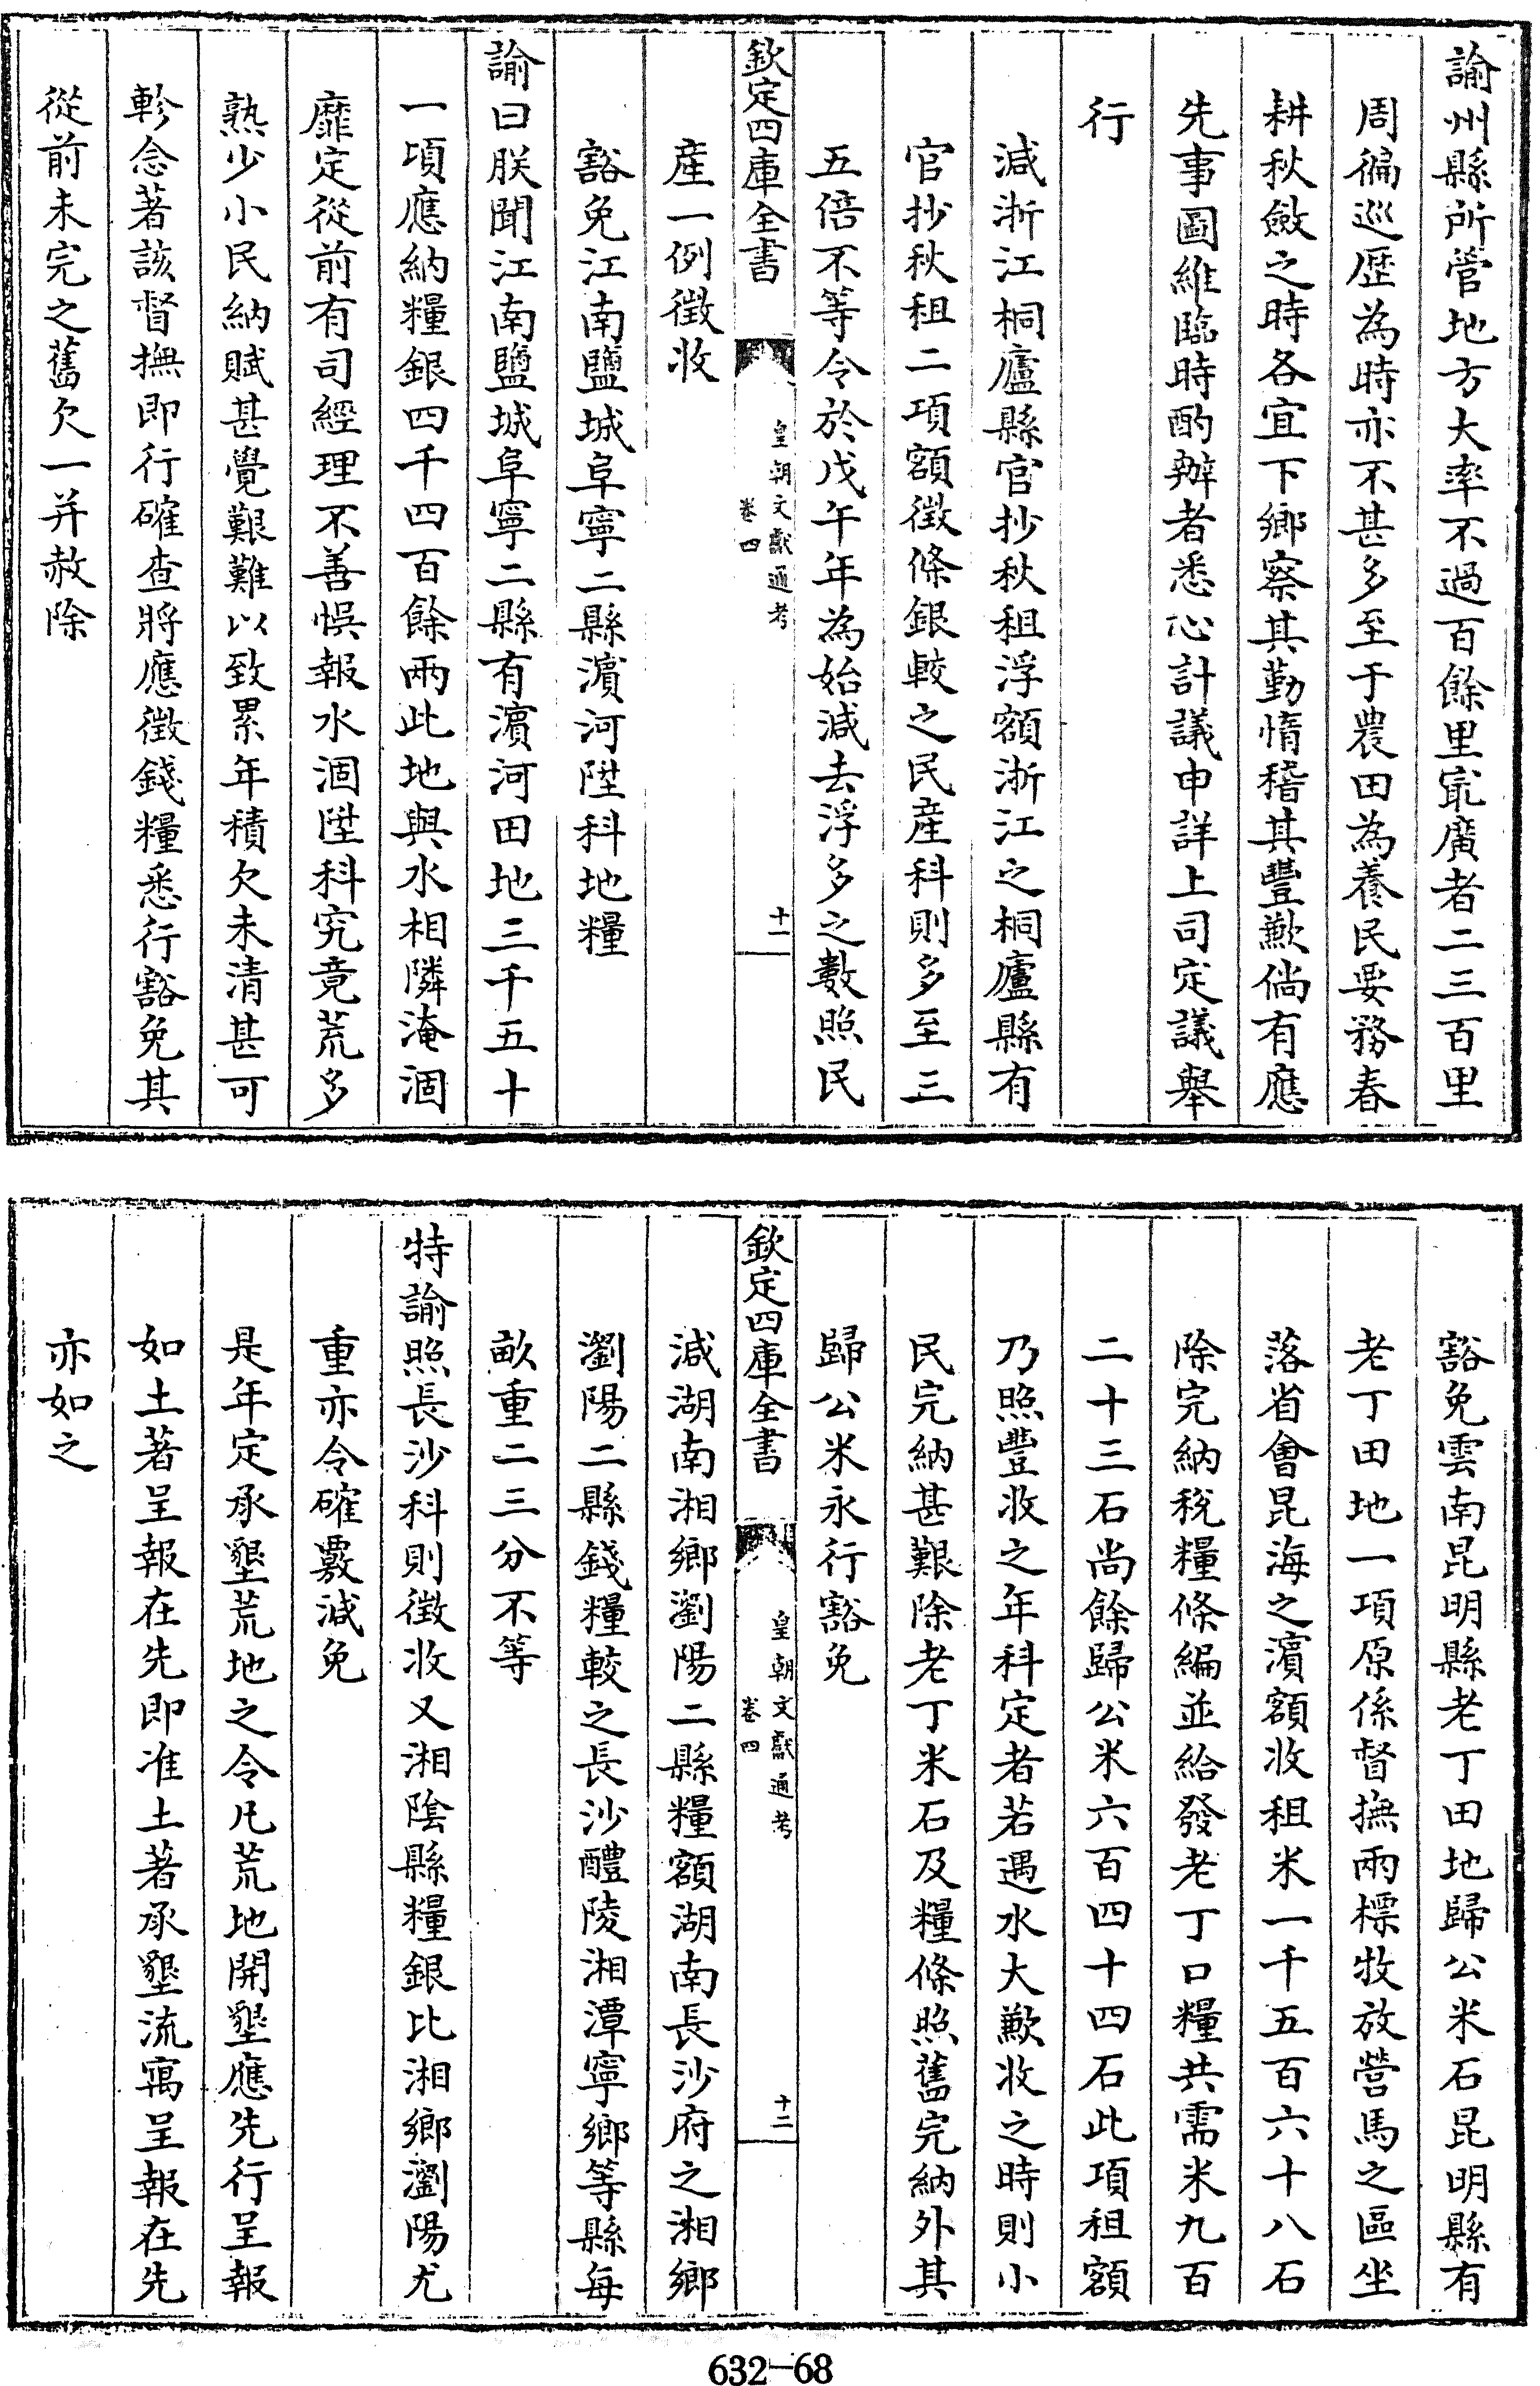 諭州縣所管地方大率不過百餘里寂廣者二三百里
周徧巡歴為時亦不甚多至于農田為養民要務春
耕秋斂之時各宜下鄉察其勤惰稽其豐歉倘有應
先事圖維臨時酌辦者悉心計議申詳上司定議舉
行
減浙江桐廬縣官抄秋租浮額浙江之桐廬縣有
官抄秋租二項額徴條銀較之民産科則多至三
五倍不等令於戊午年為始減去浮多之數照民
欽定四庫全書
皇朝文獻通考
卷四
十一
産一例徴收
豁免江南鹽城阜寧二縣濵河陞科地糧
諭曰朕聞江南鹽城阜寧二縣有濵河田地三千五十
一項應納糧銀四千四百餘兩此地與水相隣淹涸
靡定從前有司經理不善悞報水涸陞科究竟荒多
熟少小民納賦甚覺艱難以致累年積欠未清甚可
軫念著該督撫即行確查將應徴錢糧悉行豁免其
從前未完之舊欠一并赦除
豁免雲南昆明縣老丁田地歸公米石昆明縣有
老丁田地一項原係督撫兩標牧放營馬之區坐
落省會昆海之濵額收租米一千五百六十八石
除完納稅糧條編並給發老丁口糧共需米九百
二十三石尚餘歸公米六百四十四石此項租額
乃照豐收之年科定者若遇水大歉收之時則小
民完納甚艱除老丁米石及糧條照舊完納外其
歸公米永行豁免
欽定四庫全書
皇朝文獻通考
卷四
十二
減湖南湘鄉瀏陽二縣糧額湖南長沙府之湘鄉
瀏陽二縣錢糧較之長沙醴陵湘潭寧鄉等縣每
畝重二三分不等
特諭照長沙科則徴收又湘陰縣糧銀比湘鄉瀏陽尤
重亦令確覈減免
是年定承墾荒地之令凡荒地開墾應先行呈報
如土著呈報在先即准土著承墾流寓呈報在先
亦如之
632-68